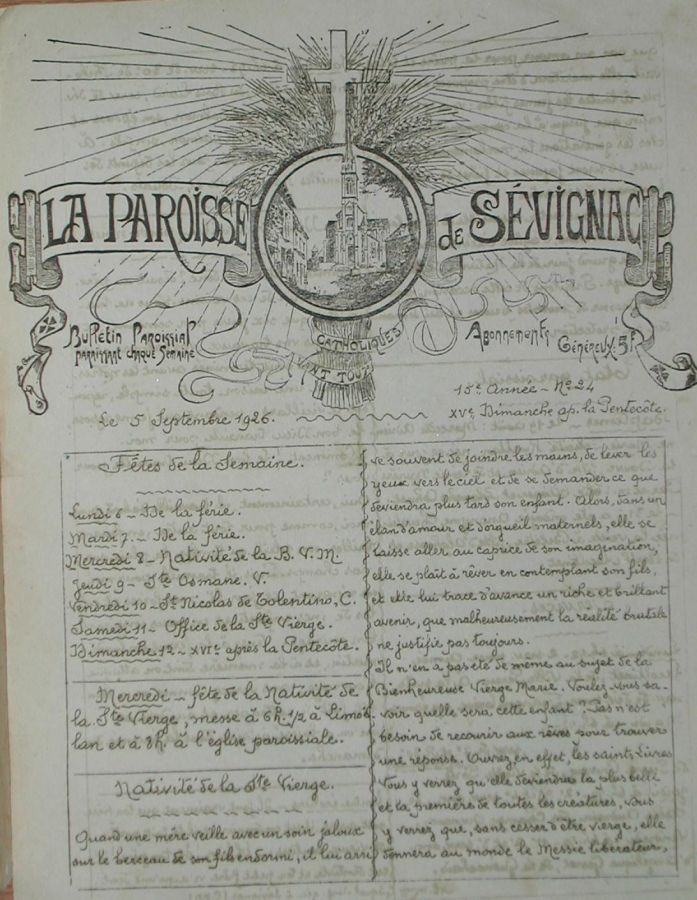 LA PAROISSE de SÉVIGNAC
Bulletin Paroissial
paraissant chaque Semaine
CATHOLIQUES
AVANT TOUT
Abonnements
Généreux: 5F
Le 5 Septembre 1926.
15e Année - No 24
XVe Dimanche ap. la Pentecôte.
Fêtes de la Semaine.
Lundi 6 - De la férie.
Mardi 7 - De la férie.
Mercredi 8 - Nativité de la B. V. M.
Jeudi 9 - Ste Osmane. V.
Vendredi 10 - St Nicolas de Tolentino, C.
Samedi 11 - Office de la Ste Vierge.
Dimanche 12 - XVIe après la Pentecôte.
Mercredi - fête de la Nativité de
la Ste Vierge, messe à 6h. 1/2 à Limoë
lan et à 8h. à l'église paroissiale.
Nativité de la Ste Vierge.
Quand une mère veille avec un soin jaloux
sur le berceau de son fils endormi, il lui arri
ve souvent de joindre les mains, de lever les
yeux vers le ciel et de se demander ce que
deviendra plus tard son enfant. Alors, dans un
élan d'amour et d'orgueil maternels, elle se
laisse aller au caprice de son imagination,
elle se plaît à rêver en contemplant son fils,
et elle lui trace d'avance un riche et brillant
avenir, que malheureusement la réalité brutale
ne justifie pas toujours.
Il n'en a pas été de même au sujet de la
Bienheureuse Vierge Marie. Voulez-vous sa-
voir quelle sera cette enfant? Pas n'est
besoin de recourir aux rêves pour trouver
une réponse. Ouvrez, en effet, les saints Livres
Vous y verrez qu'elle deviendra la plus belle
et la première de toutes les créatures, vous
y verrez que, sans cesser d'être vierge, elle
donnera au monde le Messie libérateur,